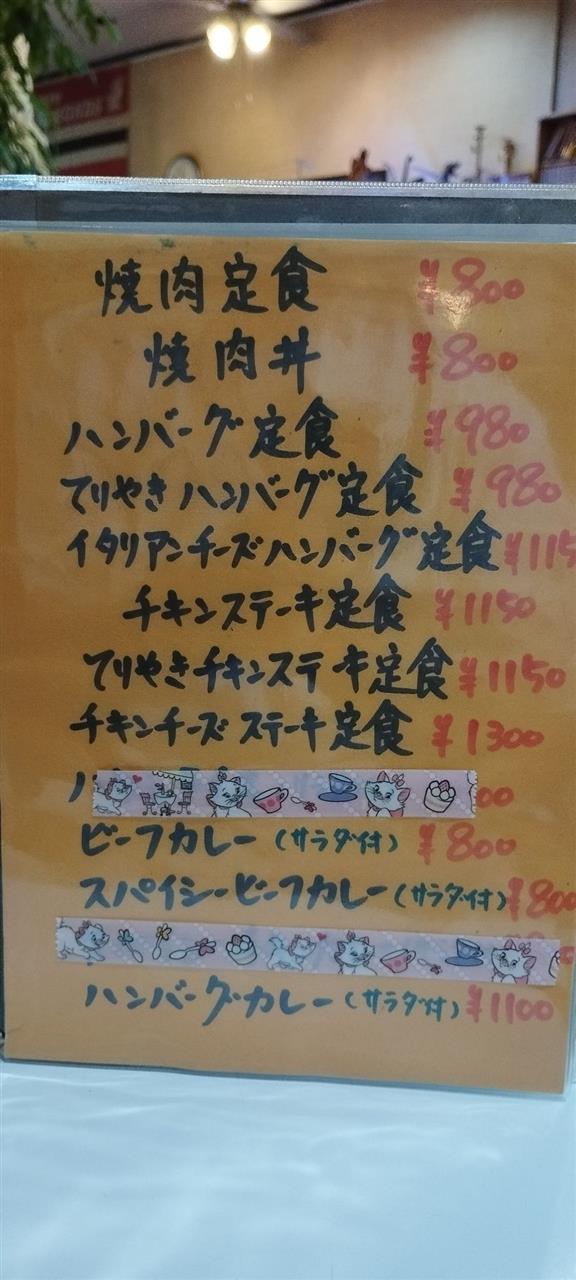 焼肉定食 ¥800
焼肉丼 ¥800
ハンバーグ定食 ¥980
てりやきハンバーグ定食 ¥980
イタリアンチーズハンバーグ定食 ¥115
チキンステーキ定食 ¥1150
てりやきチキンステーキ定食 ¥1150
チキンチーズステーキ定食 ¥1300
ビーフカレー(サラダ付) ¥800
スパイシービーフカレー(サラダ付) ¥800
ハンバーグカレー(サラダ付) ¥1100